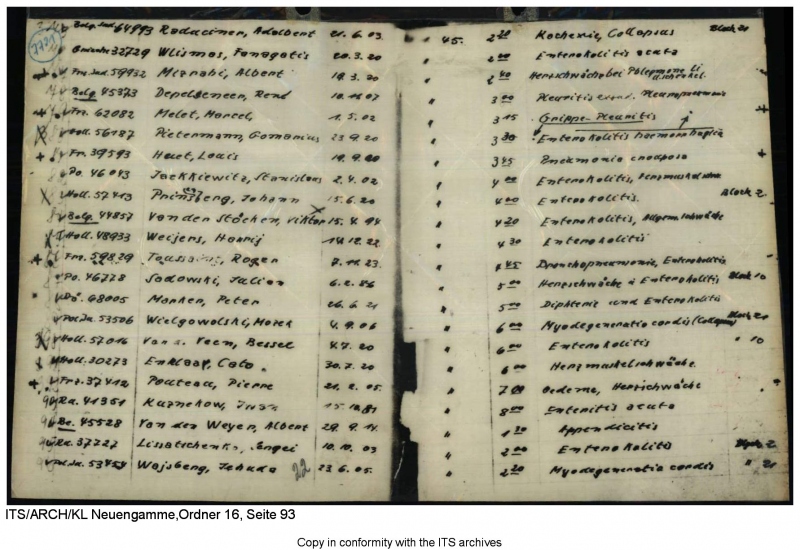 Bolg. Jud. 64993 Radaciner, Adalbert 21.6.03 45. 2 20 Kachexie, Collapsus Block 21
32729 Wlismos, Panagotis 20.3.20 " 2 00 Enterokolitis acuta
Frz. Jud. 59932 Mizrahi, Albert 19.3.20 " 2 40 Herzschwäche bei Phlegmone li.
Belg. 45373 Depelseneer, René 10.11.07 " 3 00 Pleuritis exsud. Pleuropneumonie
Frz. 62082 Melet, Marcel, 1.5.02 " 3 15 Grippe-Pleuritis
Holl. 56187 Pietermann, Germanius 23.9.20 " 3 30 Enterokolitis haemorhagica
Fr. 39593 Huet, Louis 19.9.00 " 3 45 Pneumonia crouposa
Po. 46043 Jackkiewitz, Stanislaus 2.4.02 " 4 00 Enterokolitis, Herzmuskelschw
Holl. 57413 Prinsberg, Johann 15.6.20 " 4 00 Enterokolitis. Block 2.
Belg. 44857 Van den Stöcken, Viktor 15.4.94 " 4 20 Enterokolitis, Allgem. schwäche
Holl. 48933 Weijers, Harrij 14.12.22 " 4 30 Enterokolitis
Frz. 59829 Roger 7.11.23. " 4 45 Bronchopneumonie, Enterokolitis
Po. 46778 Sadowski, Julian 6.2.86 " 5 00 Herzschwäche n Enterokolitis Block 10
68005 Manken, Peter 26.6.21 " 5 00 Diphterie und Enterokolitis
Pol. Ju. 53506 Wielgowolski, Marek 4.9.06 " 6 00 Myodegeneratio cordis (Collapsus) Block 21
Holl. 57016 van d. Veen, Bessel 4.7.20 " 6 00 Enterokolitis " 10
Holl. 30273 Enklaar, Cato. 30.7.20 " 6 00 Herzmuskelschwäche.
Frz. 37412 Pouteau, Pierre 21.2.05. " 7 00 Oedeme, Herzschwäche
Ru. 41351 Kuznekow, 15.12.81 " 8 00 Enteritis acuta
Be. 45528 Van der Weyer, Albert 29.9.14. " 1 30 Appendicitis
Ru. 37727 Lissatschenko, Sergei 10.10.03 " 2 00 Enterokolitis Block 2
Pol. Ju. 53454 Wajsberg, Jehuda 22 23.6.05. " 2 20 Myodegeneratio cordis " 21
ITS/ARCH/KL Neuengamme,Ordner 16, Seite 93
Copy in conformity with the ITS archives